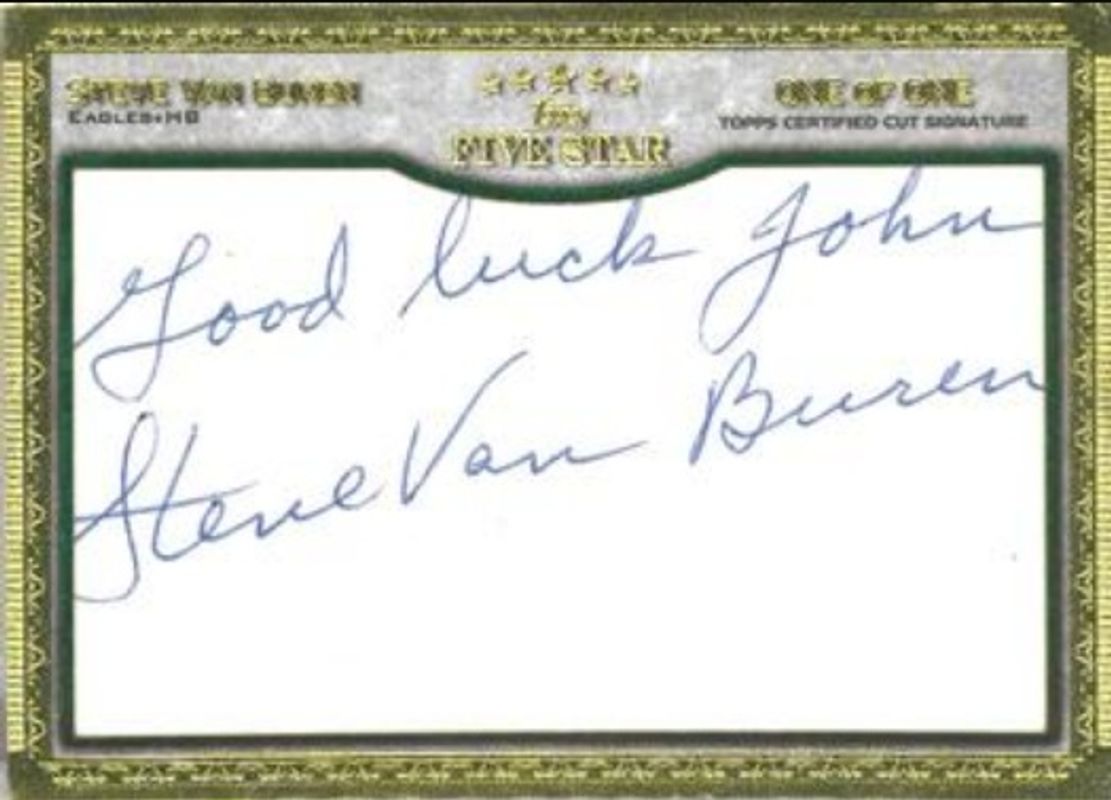 STEVE VAN BUREN
EAGLES • HB
Topps
FIVE STAR
ONE OF ONE
TOPPS CERTIFIED CUT SIGNATURE
Good luck John
Steve Van Buren